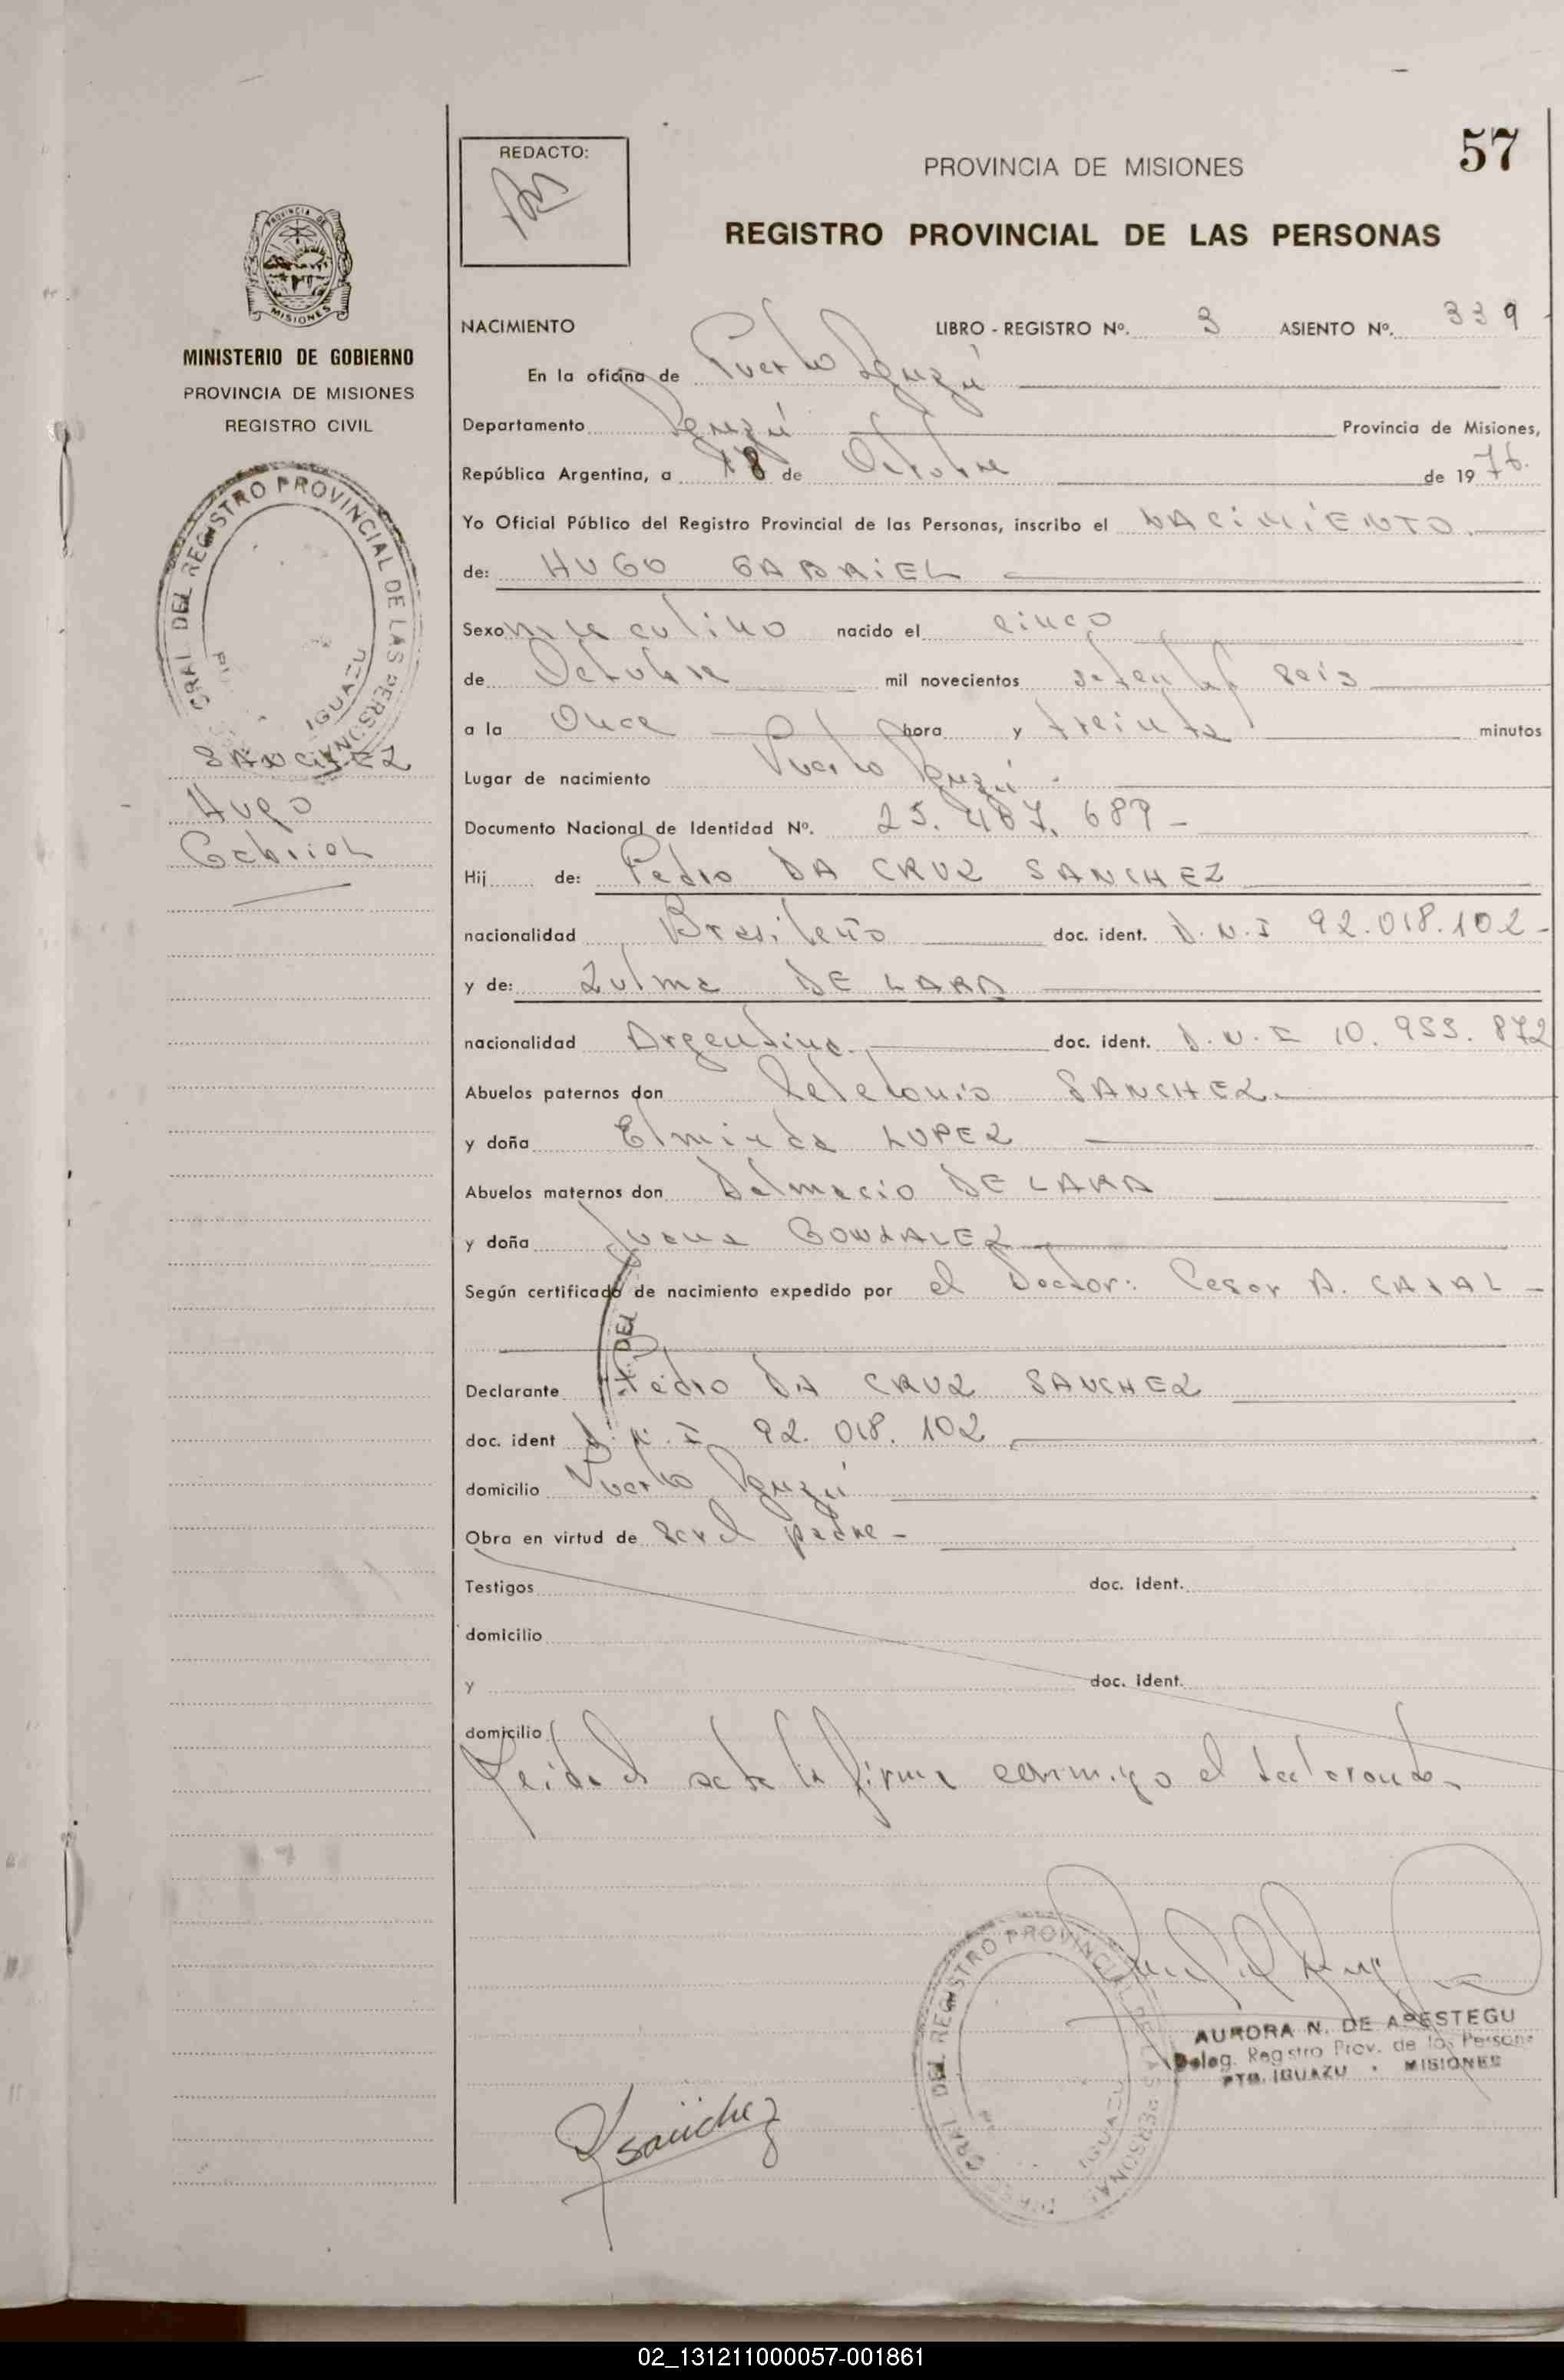 57
REDACTO:
PROVINCIA DE MISIONES
REGISTRO PROVINCIAL DE LAS PERSONAS
PROVINCIA DE
MISIONES
MINISTERIO DE GOBIERNO
PROVINCIA DE MISIONES
REGISTRO CIVIL
GRAL DEL REGISTRO PROVINCIAL DE LAS PERSONAS
IGUAZU
SANCHEZ
Hugo
Gabriel
NACIMIENTO LIBRO - REGISTRO Nº. 3 ASIENTO Nº. 339
En la oficina de Puerto Iguazú
Departamento Iguazú Provincia de Misiones,
República Argentina, a 18 de Octubre de 1976.
Yo Oficial Público del Registro Provincial de las Personas, inscribo el NACIMIENTO.
de: HUGO GABRIEL
Sexo masculino nacido el cinco
de Octubre mil novecientos setenta y seis
a la Once hora y treinta minutos
Lugar de nacimiento Puerto Iguazú.
Documento Nacional de Identidad Nº. 25. 487. 689 -
Hij de: Pedro DA CRUZ SANCHEZ
nacionalidad Brasileño doc. ident. D.N.I 92.018.102-
y de: Zulma DE LARA
nacionalidad Argentina. doc. ident. D.N.I 10. 955. 872
Abuelos paternos don SANCHEZ.
y doña LOPEZ
Abuelos maternos don Dalmacio DE LARA
y doña Juana GONZALEZ
Según certificado de nacimiento expedido por el Doctor: Cesar A.
DEL
Declarante Pedro DA CRUZ SANCHEZ
doc. ident D.N.I 92. 018. 102
domicilio Puerto Iguazú
Obra en virtud de ser el padre -
Testigos doc. ident.
domicilio
y doc. ident.
domicilio
Leida el acta la firma conmigo el declarante.
GRAL DEL REGISTRO PROVINCIAL DE LAS PERSONAS
IGUAZU
AURORA N. DE APESTEGU
Deleg. Registro Prov. de las Persona
PTO. IGUAZU - MISIONES
Sanchez
02_131211000057-001861